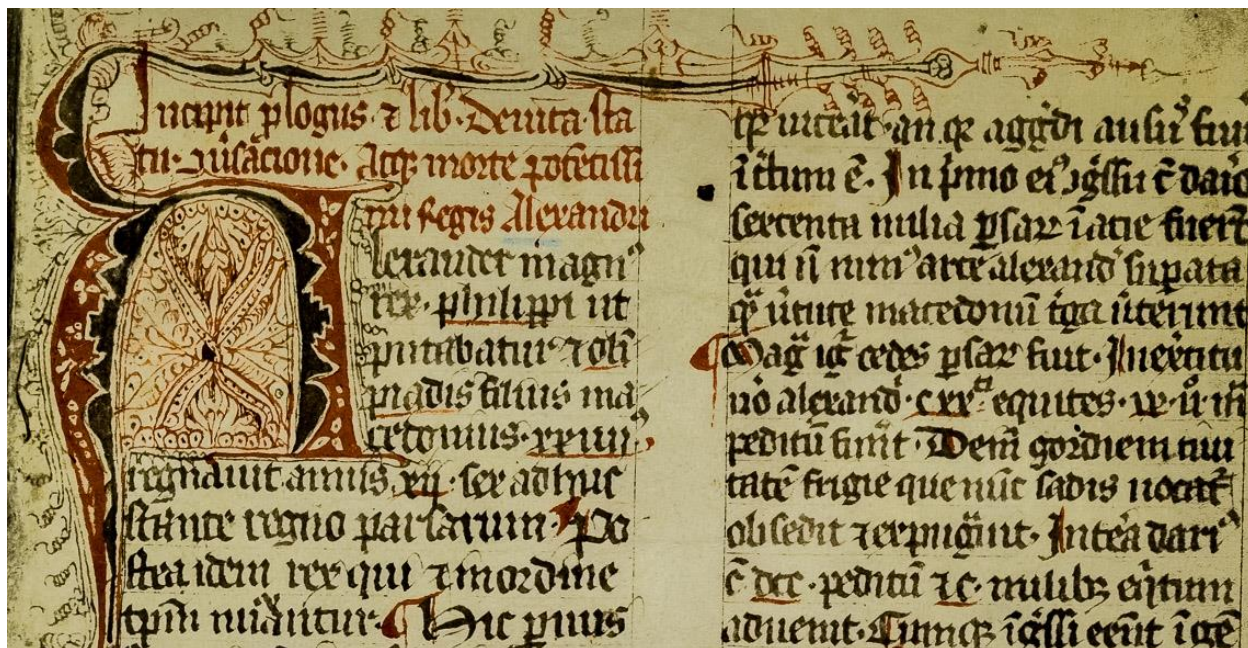 Incipit plogus ⁊ lib᷒. De uita sta
tu. Atq; morte potẽtissi
mi Regis Alexandri
Alexander magn᷒
rex. philippi ut
putabatur ⁊ oli
piadis filius ma
cedonius. xxiiii᷒.
regnauit annis xij. sex ad huc
stante regno parsarum. Po
stea idem rex qui ⁊ in ordine
tpm. Hic p̃mus
an q; agg̃di ausu᷒ fuit
ĩ. In p̃mo ei᷒ ꝯg̃ssu c̃ dario
sexcenta milia ꝑsaꝝ ĩ acie fuer̃t
qui ñ min᷒ arte alexand᷒ supata
q̃ ũtute macedonũ t̃ga ũterunt
Mag̃ ig̃ cedes ꝑsaꝝ fuit. In ex̃citu
ũo alexand᷒. cxx equites. xx. ũ
peditũ fuũt. Dem̃ gordiem ciui
tatẽ frigie que nũc sadis uocat᷒
obsedit ⁊ expug̃uit. Intea dari᷒
c̃ dcc. peditũ ⁊ c. milib; eq̃tum
aduenit. Cumq; ĩg̃ssi eẽnt ĩ gẽ